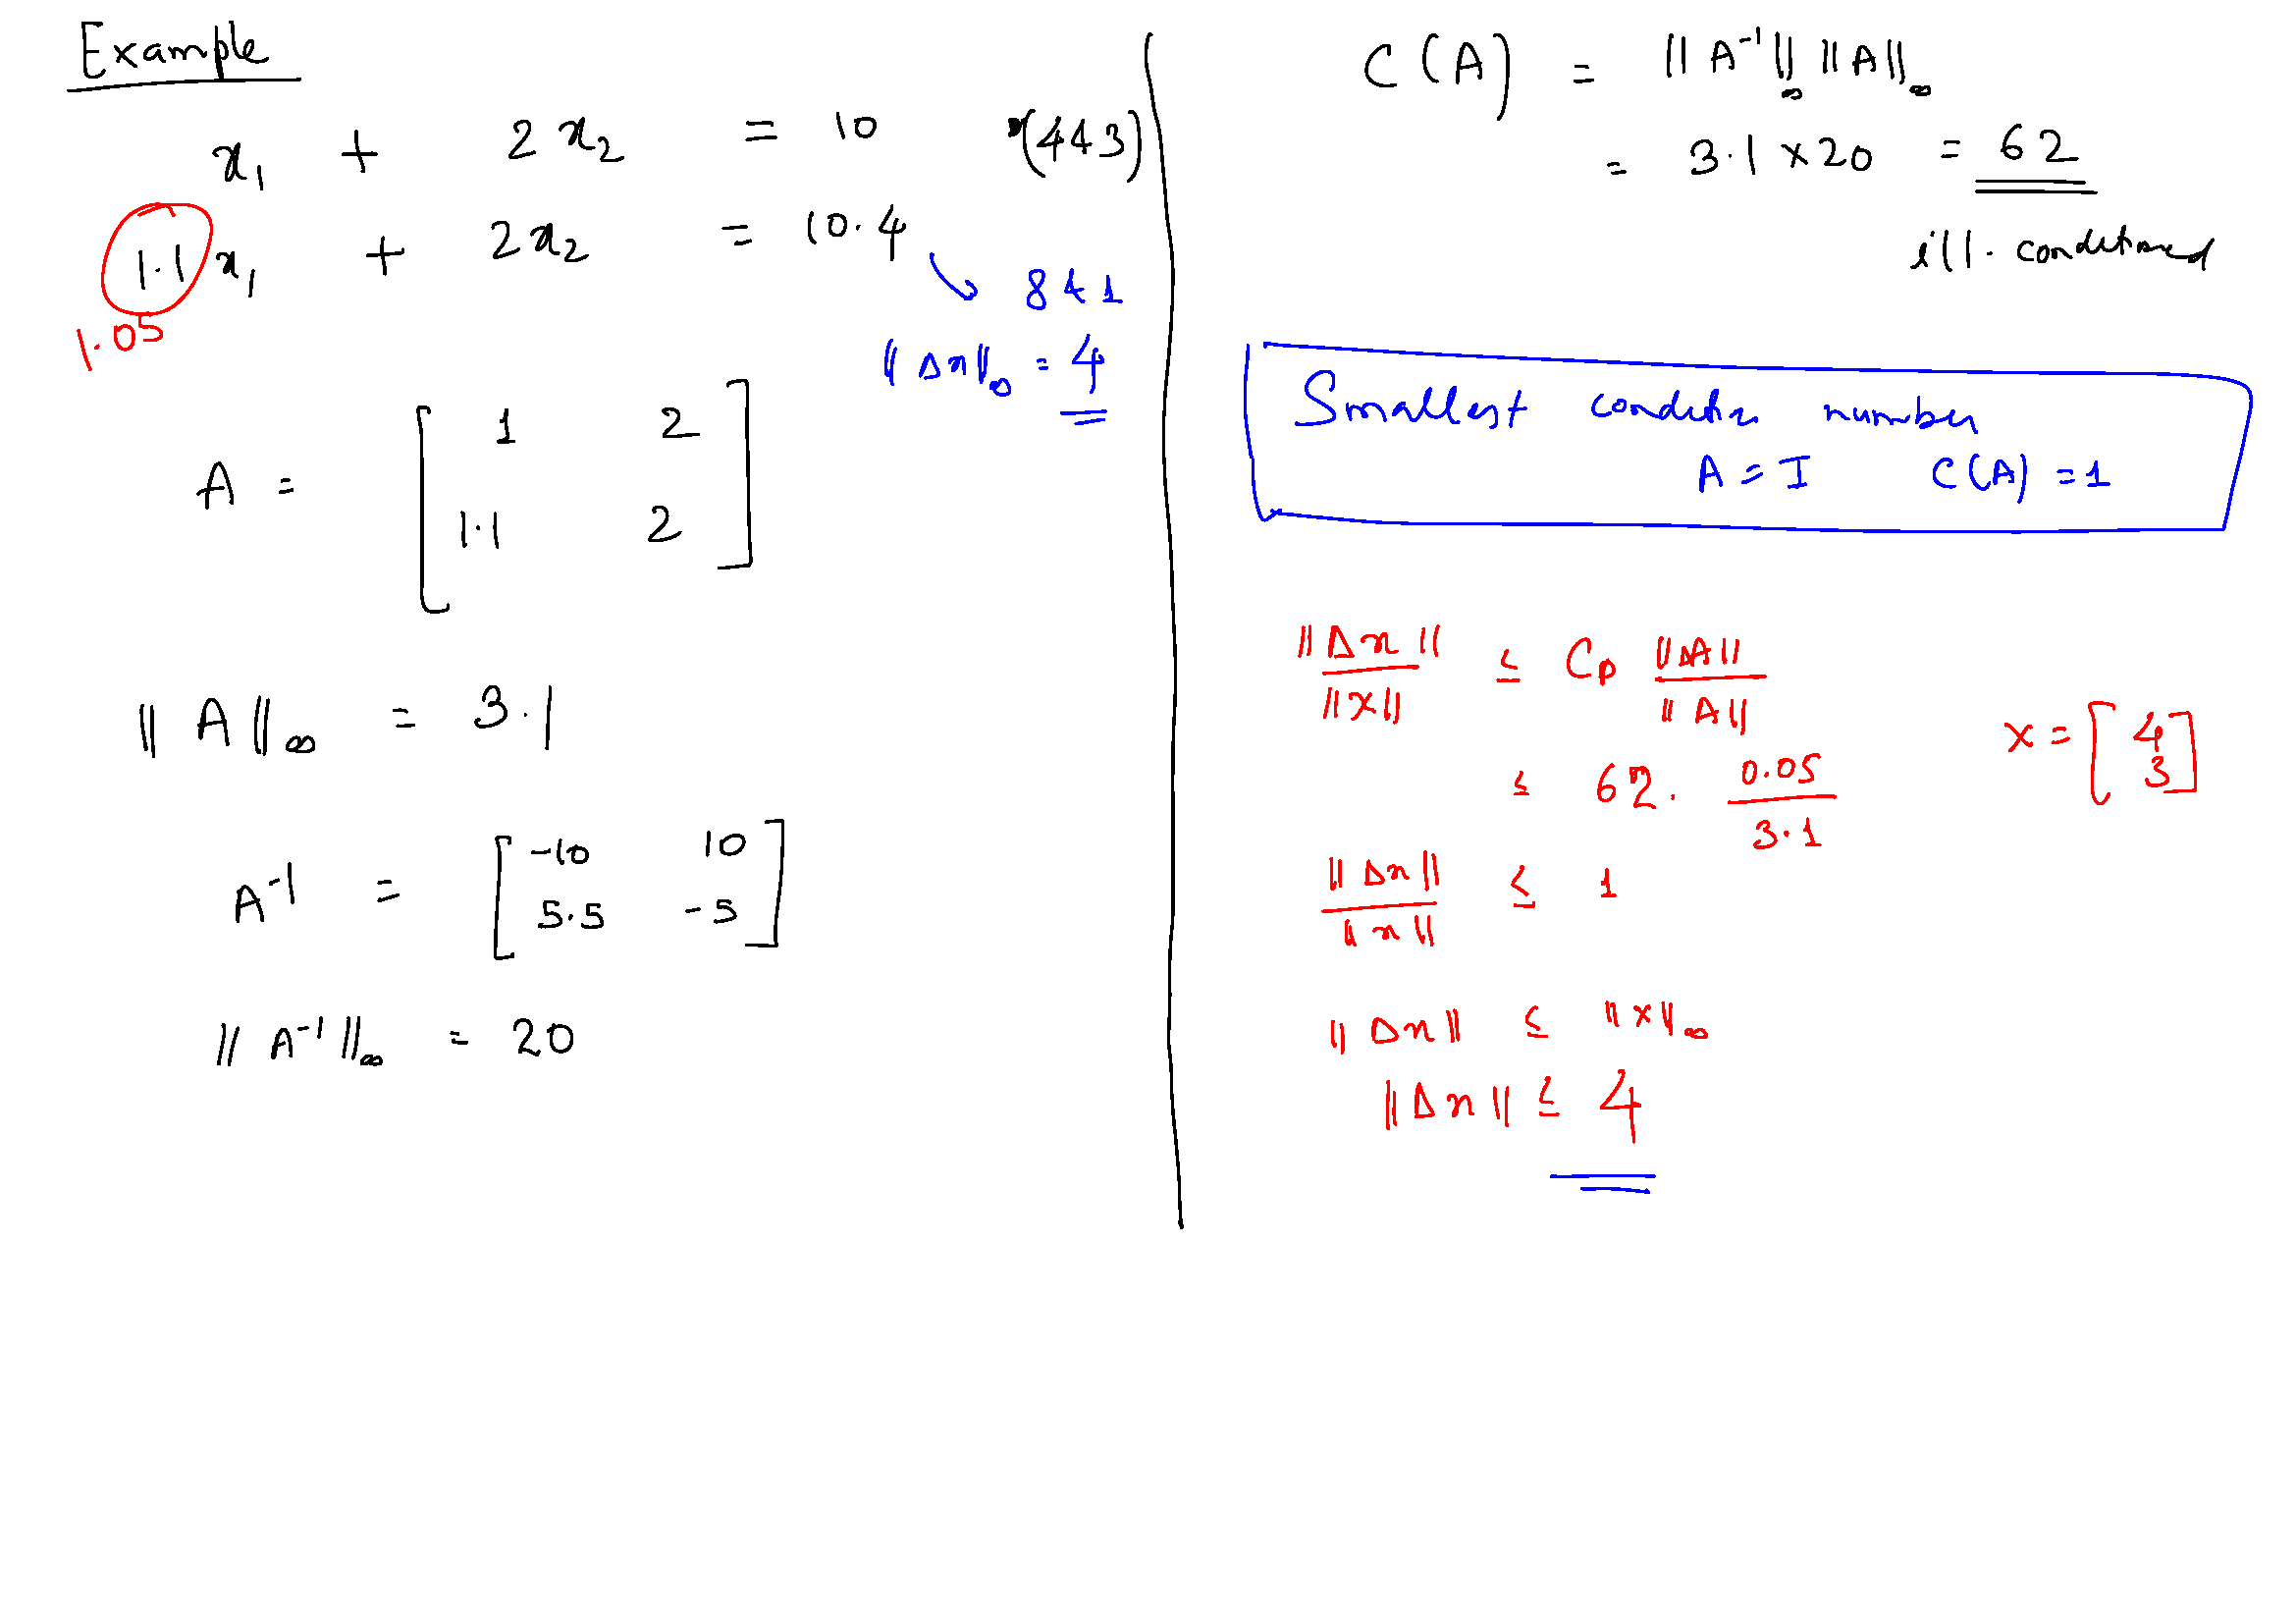 Example
x₁ + 2x₂ = 10 (4 & 3)
1.1 x₁ + 2x₂ = 10.4
1.05
8 & 1
‖Δx‖∞ = 4
A = [ 1 2
1.1 2 ]
‖A‖∞ = 3.1
A⁻¹ = [ -10 10
5.5 -5 ]
‖A⁻¹‖∞ = 20
C(A) = ‖A⁻¹‖∞ ‖A‖∞
= 3.1 × 20 = 62
ill-conditioned
Smallest condition number
A = I C(A) = 1
‖Δx‖ / ‖x‖ ≤ Cp ‖ΔA‖ / ‖A‖
x = [ 4
3 ]
≤ 62 . 0.05 / 3.1
‖Δx‖ / ‖x‖ ≤ 1
‖Δx‖ ≤ ‖x‖∞
‖Δx‖ ≤ 4